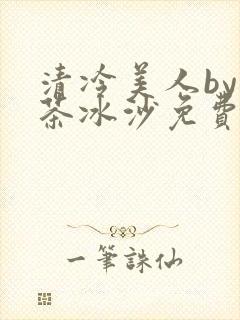 清冷美人by
茶冰沙免費
一筆誅仙